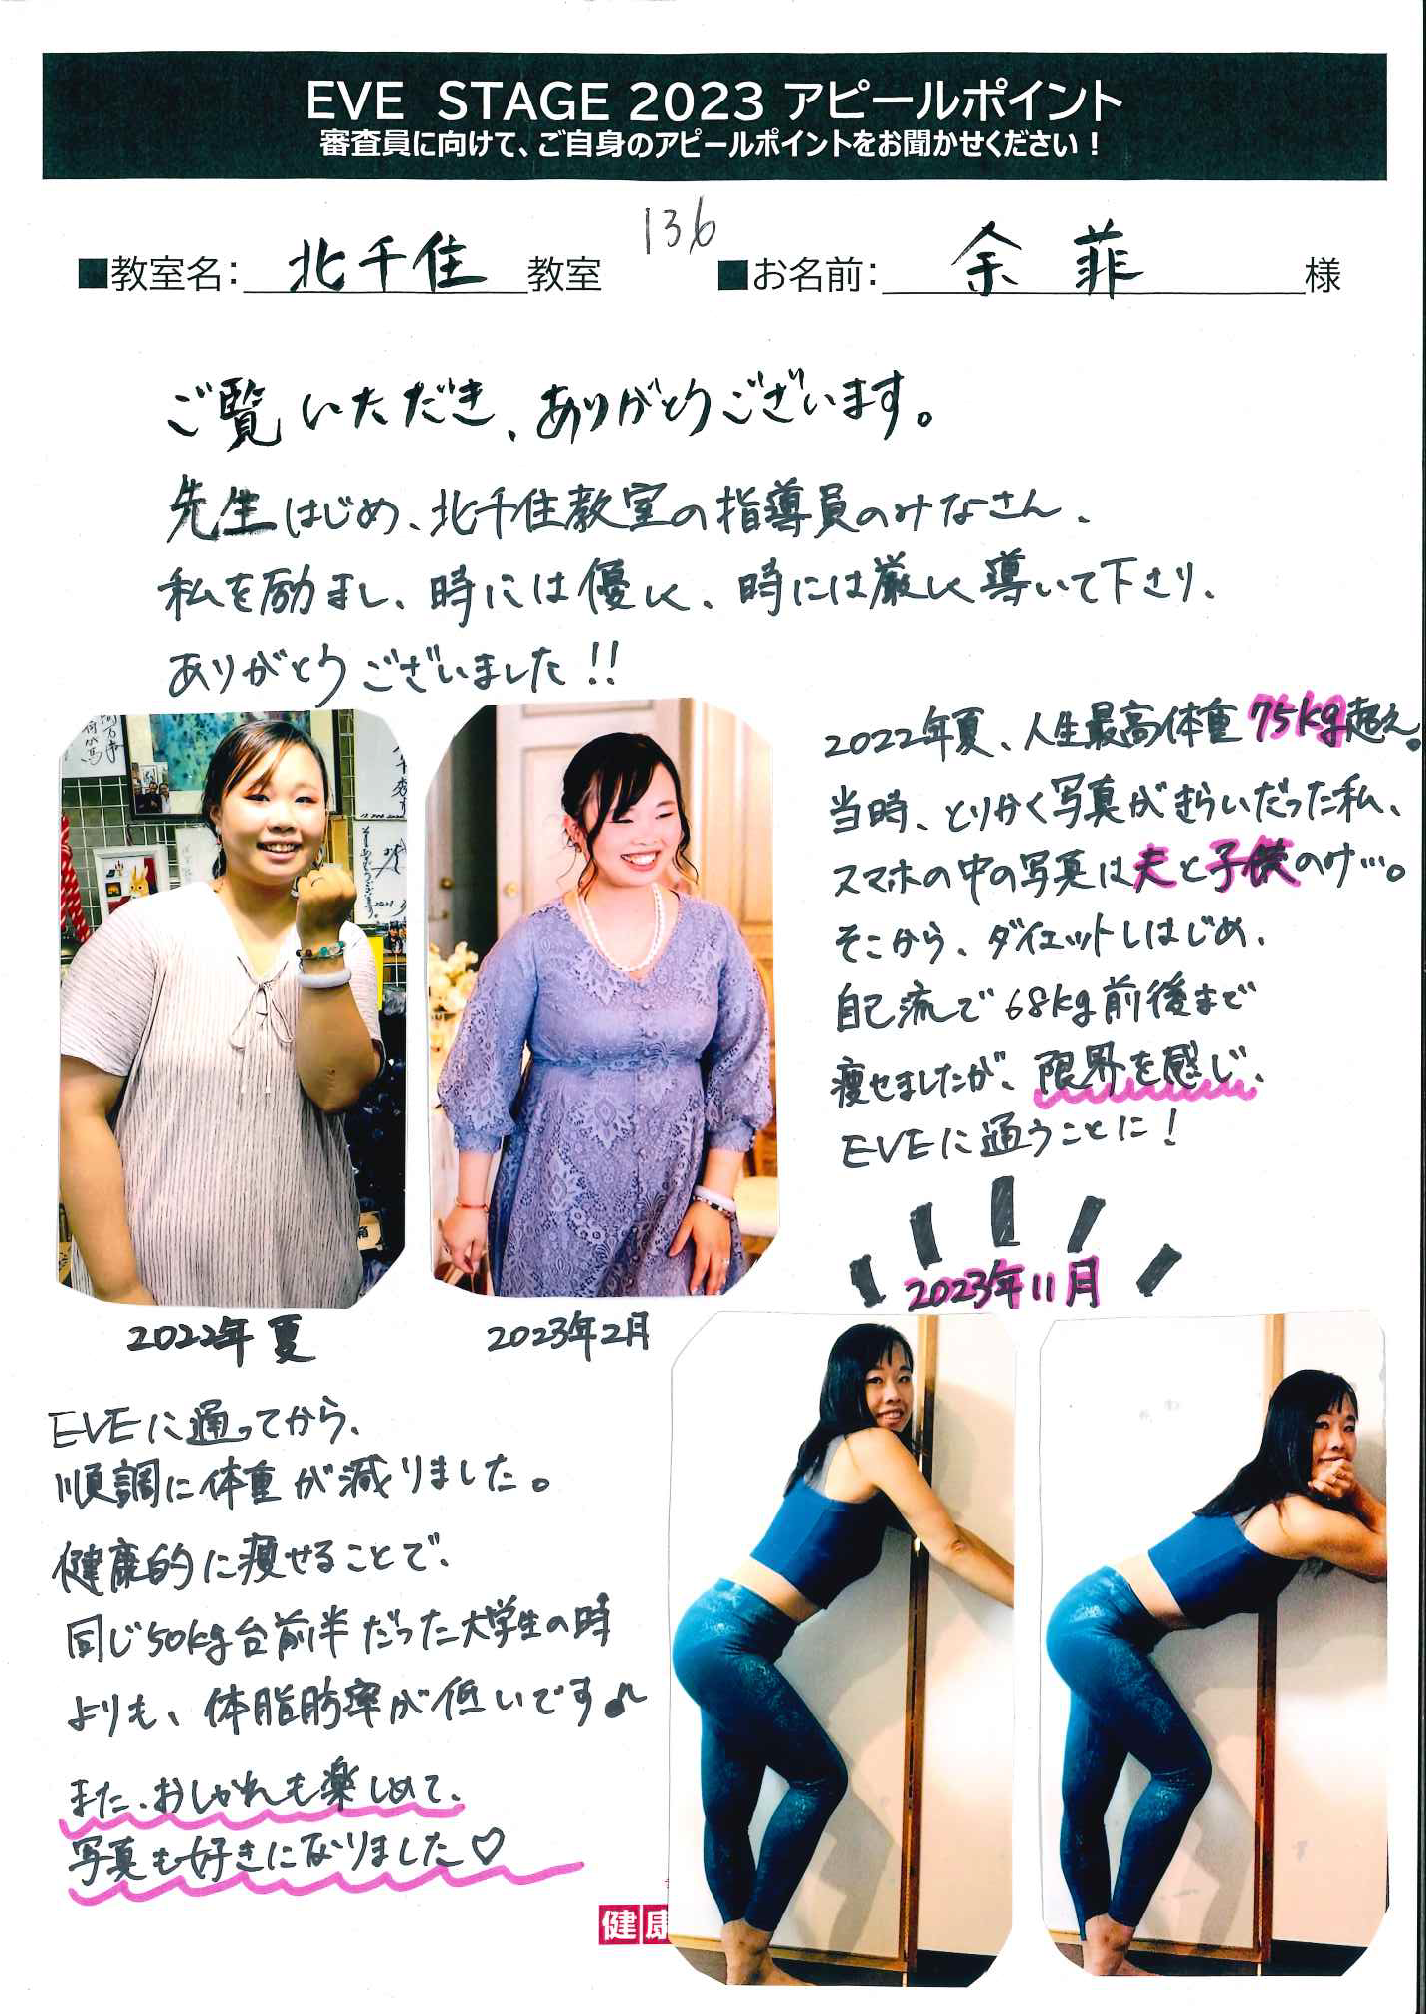 EVE STAGE 2023 アピールポイント
審査員に向けて、ご自身のアピールポイントをお聞かせください！
136
■教室名： 北千住 教室
■お名前： 余 菲 様
ご覧いただき、ありがとうございます。
先生はじめ、北千住教室の指導員のみなさん、
私を励まし、時には優しく、時には厳しく導いて下さり、
ありがとうございました!!
2022年夏、人生最高体重75kg超え。
当時、とりかく写真がきらいだった私、
スマホの中の写真は夫と子供のみ…。
そこから、ダイエットしはじめ、
自己流で68kg前後まで
痩せましたが、限界を感じ、
EVEに通うことに！
2022年 夏
2023年2月
2023年11月
EVEに通ってから、
順調に体重が減りました。
健康的に痩せることで、
同じ50kg台前半だった大学生の時
よりも、体脂肪率が低いです♪
また、おしゃれも楽しめて、
写真も好きになりました♡
健康